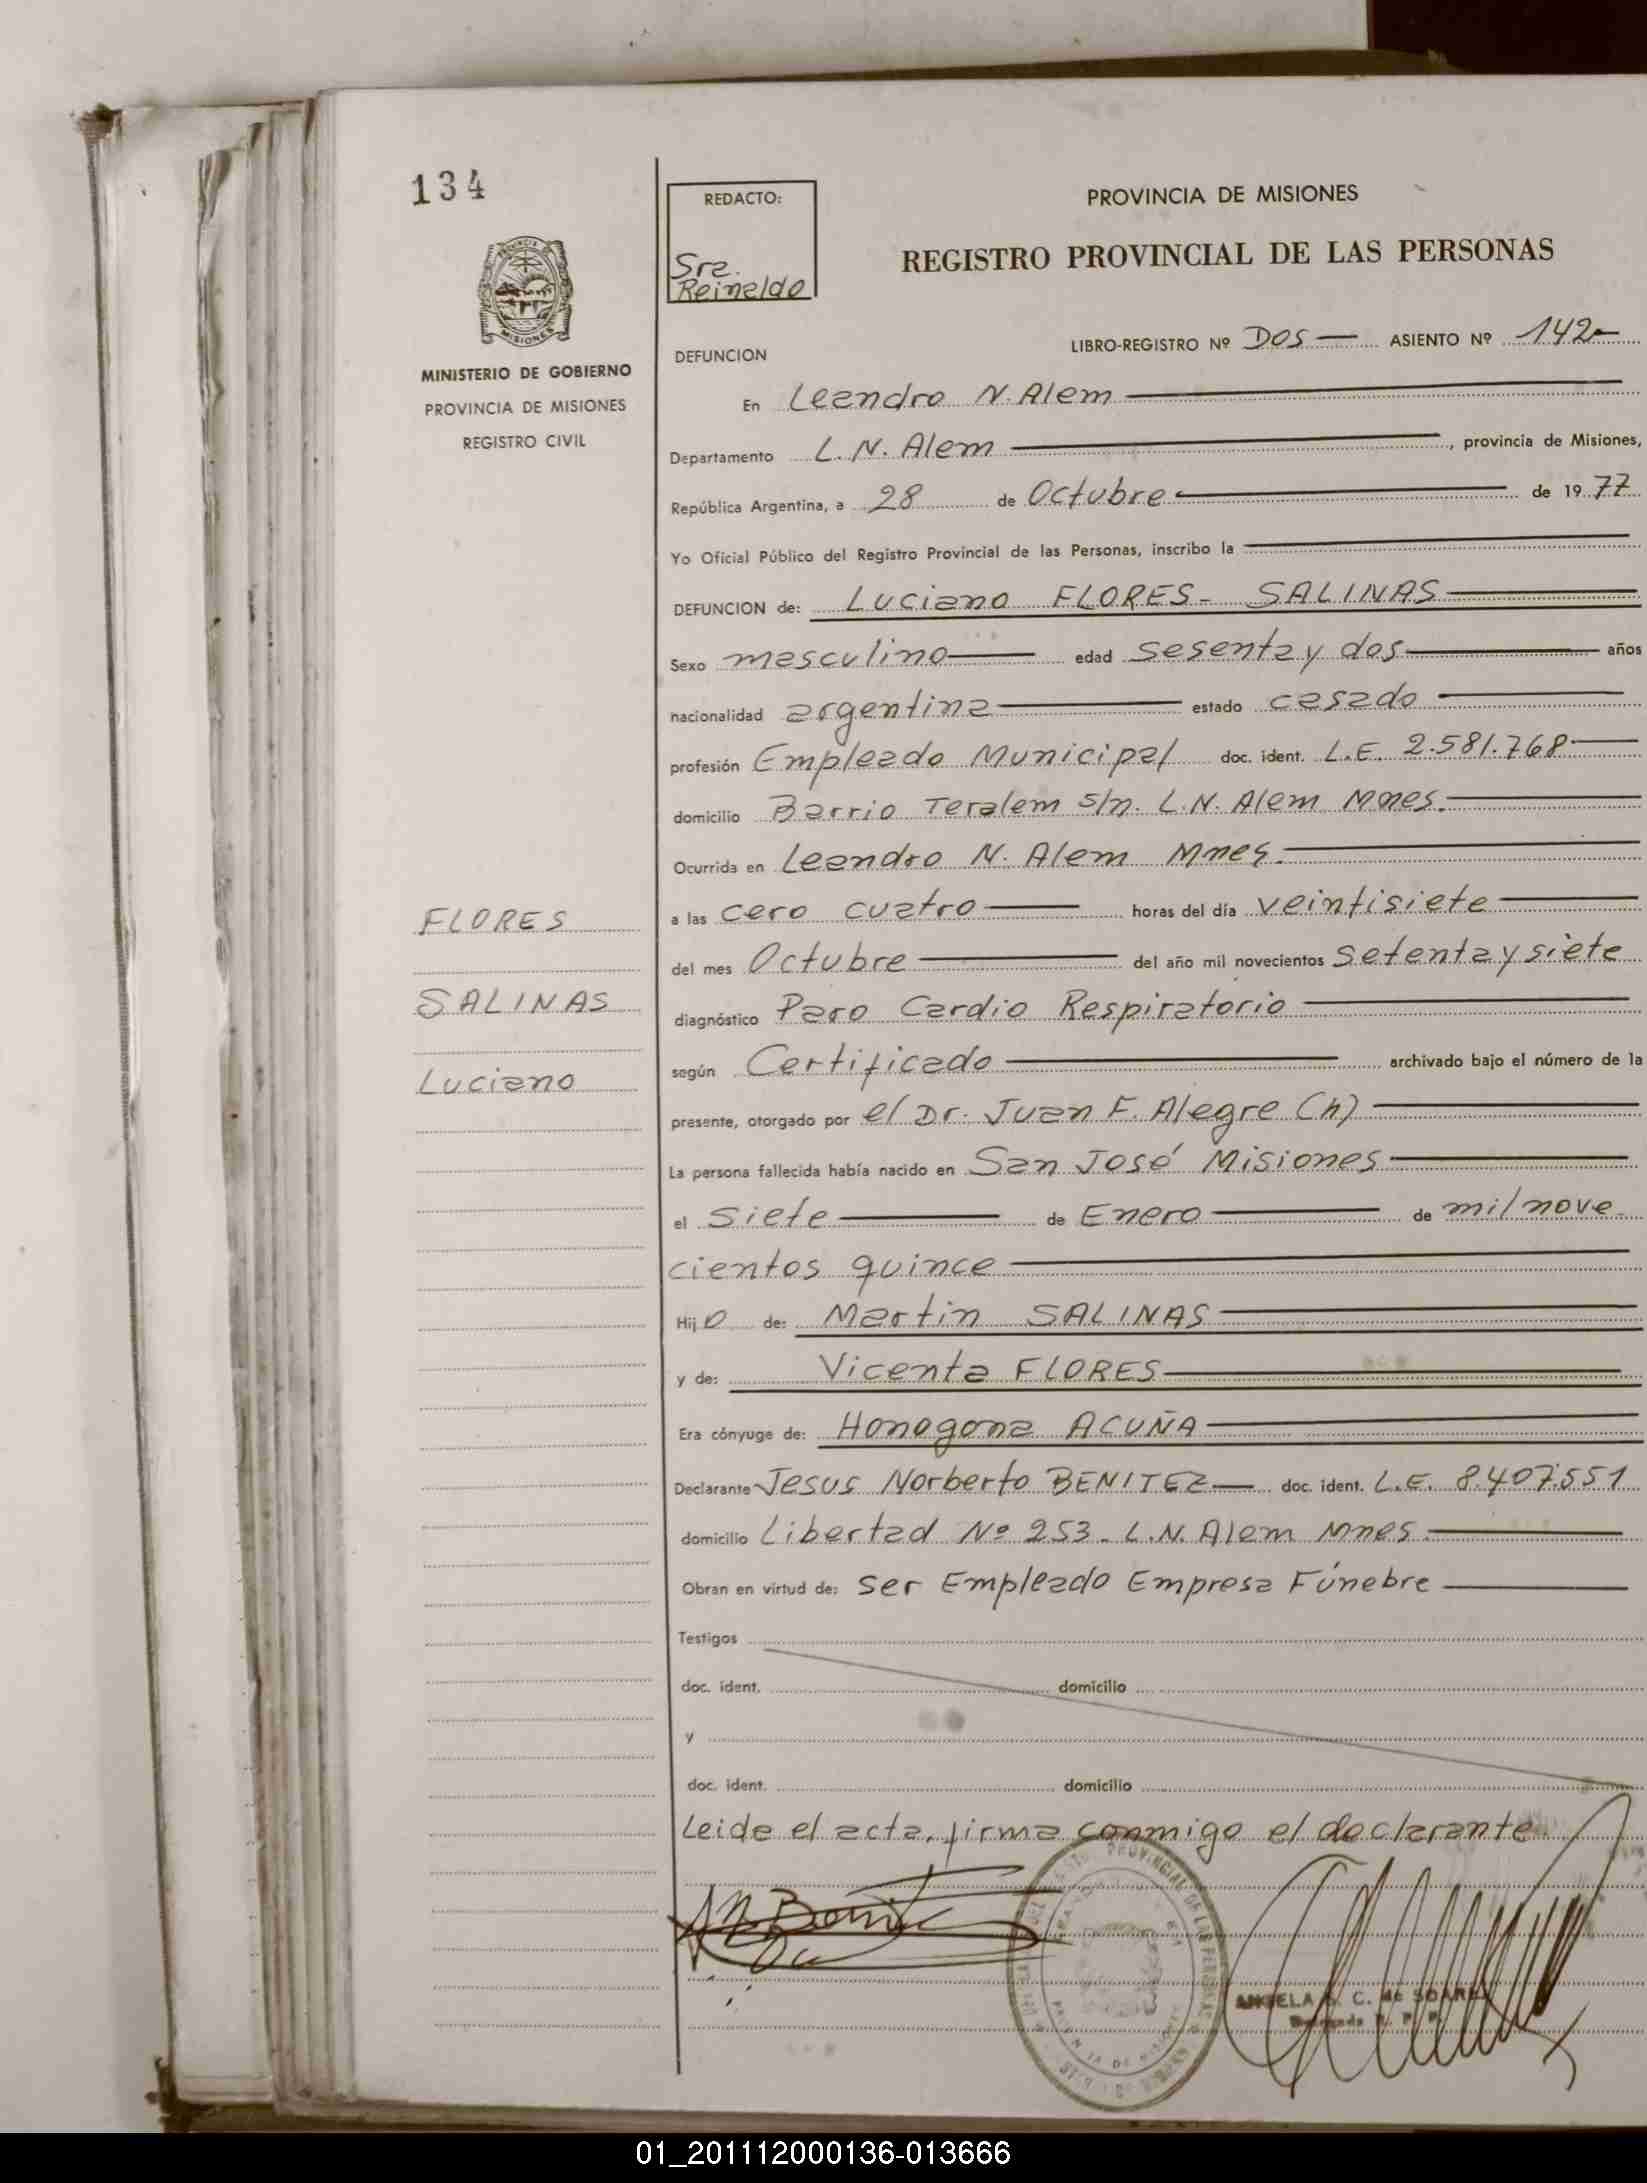 134
PROVINCIA DE
MISIONES
MINISTERIO DE GOBIERNO
PROVINCIA DE MISIONES
REGISTRO CIVIL
FLORES
SALINAS
Luciano
REDACTO:
Sra.
Reinaldo
PROVINCIA DE MISIONES
REGISTRO PROVINCIAL DE LAS PERSONAS
DEFUNCION
LIBRO-REGISTRO Nº DOS — ASIENTO Nº 142-
En Leandro N. Alem
Departamento L. N. Alem , provincia de Misiones,
República Argentina, a 28 de Octubre de 1977
Yo Oficial Público del Registro Provincial de las Personas, inscribo la
DEFUNCION de: Luciano FLORES- SALINAS
Sexo masculino edad sesenta y dos años
nacionalidad argentina estado casado
profesión Empleado Municipal doc. ident. L.E. 2.581.768
domicilio Barrio Teralem s/n. L.N. Alem Mnes.
Ocurrida en Leandro N. Alem Mnes.
a las cero cuatro horas del día veintisiete
del mes Octubre del año mil novecientos setenta y siete
diagnóstico Paro Cardio Respiratorio
según Certificado archivado bajo el número de la
presente, otorgado por el Dr. Juan F. Alegre (h)
La persona fallecida había nacido en San José Misiones
el siete de Enero de mil nove
cientos quince
Hijo de: Martin SALINAS
y de: Vicenta FLORES
Era cónyuge de: Honogona ACUÑA
Declarante Jesus Norberto BENITEZ doc. ident. L.E. 8.407.551
domicilio Libertad Nº 253- L.N. Alem Mnes.
Obran en virtud de: ser Empleado Empresa Fúnebre
Testigos
doc. ident. domicilio
y
doc. ident. domicilio
Leide el acta, firma conmigo el declarante
ANGELA C. de SOARE
01_201112000136-013666